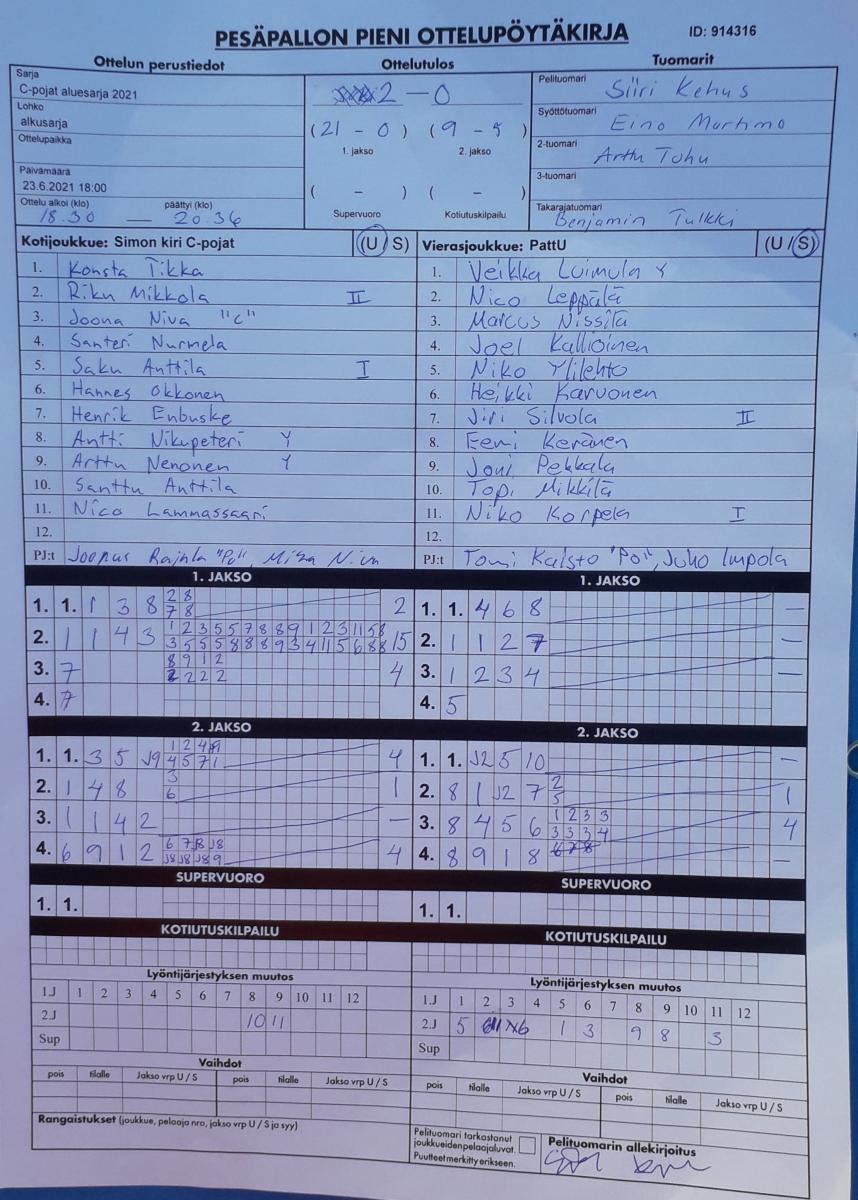 PESÄPALLON PIENI OTTELUPÖYTÄKIRJA ID: 914316
Ottelun perustiedot Ottelutulos Tuomarit
Sarja
C-pojat aluesarja 2021
Lohko
alkusarja
Ottelupaikka
Päivämäärä
23.6.2021 18:00
Ottelu alkoi (klo) päättyi (klo)
18.30 — 20.36
2 - 0
(21 - 0) (9 - 5)
1. jakso 2. jakso
( - ) ( - )
Supervuoro Kotiutuskilpailu
Pelituomari Siiri Kehus
Syöttötuomari Eino Murtimo
2-tuomari Arttu Tuhu
3-tuomari
Takarajatuomari
Benjamin Tulkki
Kotijoukkue: Simon kiri C-pojat (U / S)
1. Konsta Tikka
2. Riku Mikkola II
3. Joona Niva "C"
4. Santeri Nurmela
5. Saku Anttila I
6. Hannes Okkonen
7. Henrik Enbuske
8. Antti Nikupeteri Y
9. Arttu Nenonen Y
10. Santtu Anttila
11. Nico Lammassaari
12.
PJ:t Joonas Rajala "PJ", Miza Niva
Vierasjoukkue: PattU (U / S)
1. Veikka Luimula Y
2. Nico Leppälä
3. Marcus Nissilä
4. Joel Kallioinen
5. Niko Ylilehto
6. Heikki Karvonen
7. Jiri Silvola II
8. Eemi Keränen
9. Joni Pekkala
10. Topi Mikkilä
11. Niko Korpela I
12.
PJ:t Tomi Kaisto "PJ", Juho Impola
1. JAKSO
1. 1. 1 3 8 2 8 2
7 8
2. 1 1 4 3 1 2 3 5 5 7 8 8 9 1 2 3 11 5 8 15
3 5 5 5 8 8 8 9 3 4 11 5 6 8 8
3. 7 8 9 1 2 4
2 2 2 2
4. 7
1. JAKSO
1. 1. 4 6 8 —
2. 1 1 2 7 —
3. 1 2 3 4 —
4. 5
2. JAKSO
1. 1. 3 5 J9 1 2 4 9 4
4 5 7 1
2. 1 4 8 3 1
6
3. 1 1 4 2 —
4. 6 9 1 2 6 7 J8 J8 4
J8 J8 J8 9
2. JAKSO
1. 1. J2 5 10 —
2. 8 1 J2 7 2 1
5
3. 8 4 5 6 1 2 3 3 4
3 3 3 4
4. 8 9 1 8 —
SUPERVUORO
1. 1.
SUPERVUORO
1. 1.
KOTIUTUSKILPAILU
KOTIUTUSKILPAILU
Lyöntijärjestyksen muutos
1.J 1 2 3 4 5 6 7 8 9 10 11 12
2.J 10 11
Sup
Lyöntijärjestyksen muutos
1.J 1 2 3 4 5 6 7 8 9 10 11 12
2.J 5 1 3 9 8 3
Sup
Vaihdot
pois tilalle Jakso vrp U / S pois tilalle Jakso vrp U / S
Vaihdot
pois tilalle Jakso vrp U / S pois tilalle Jakso vrp U / S
Rangaistukset (joukkue, pelaaja nro, jakso vrp U / S ja syy)
Pelituomari tarkastanut
joukkueidenpelaajaluvat.
Puutteet merkitty erikseen.
Pelituomarin allekirjoitus